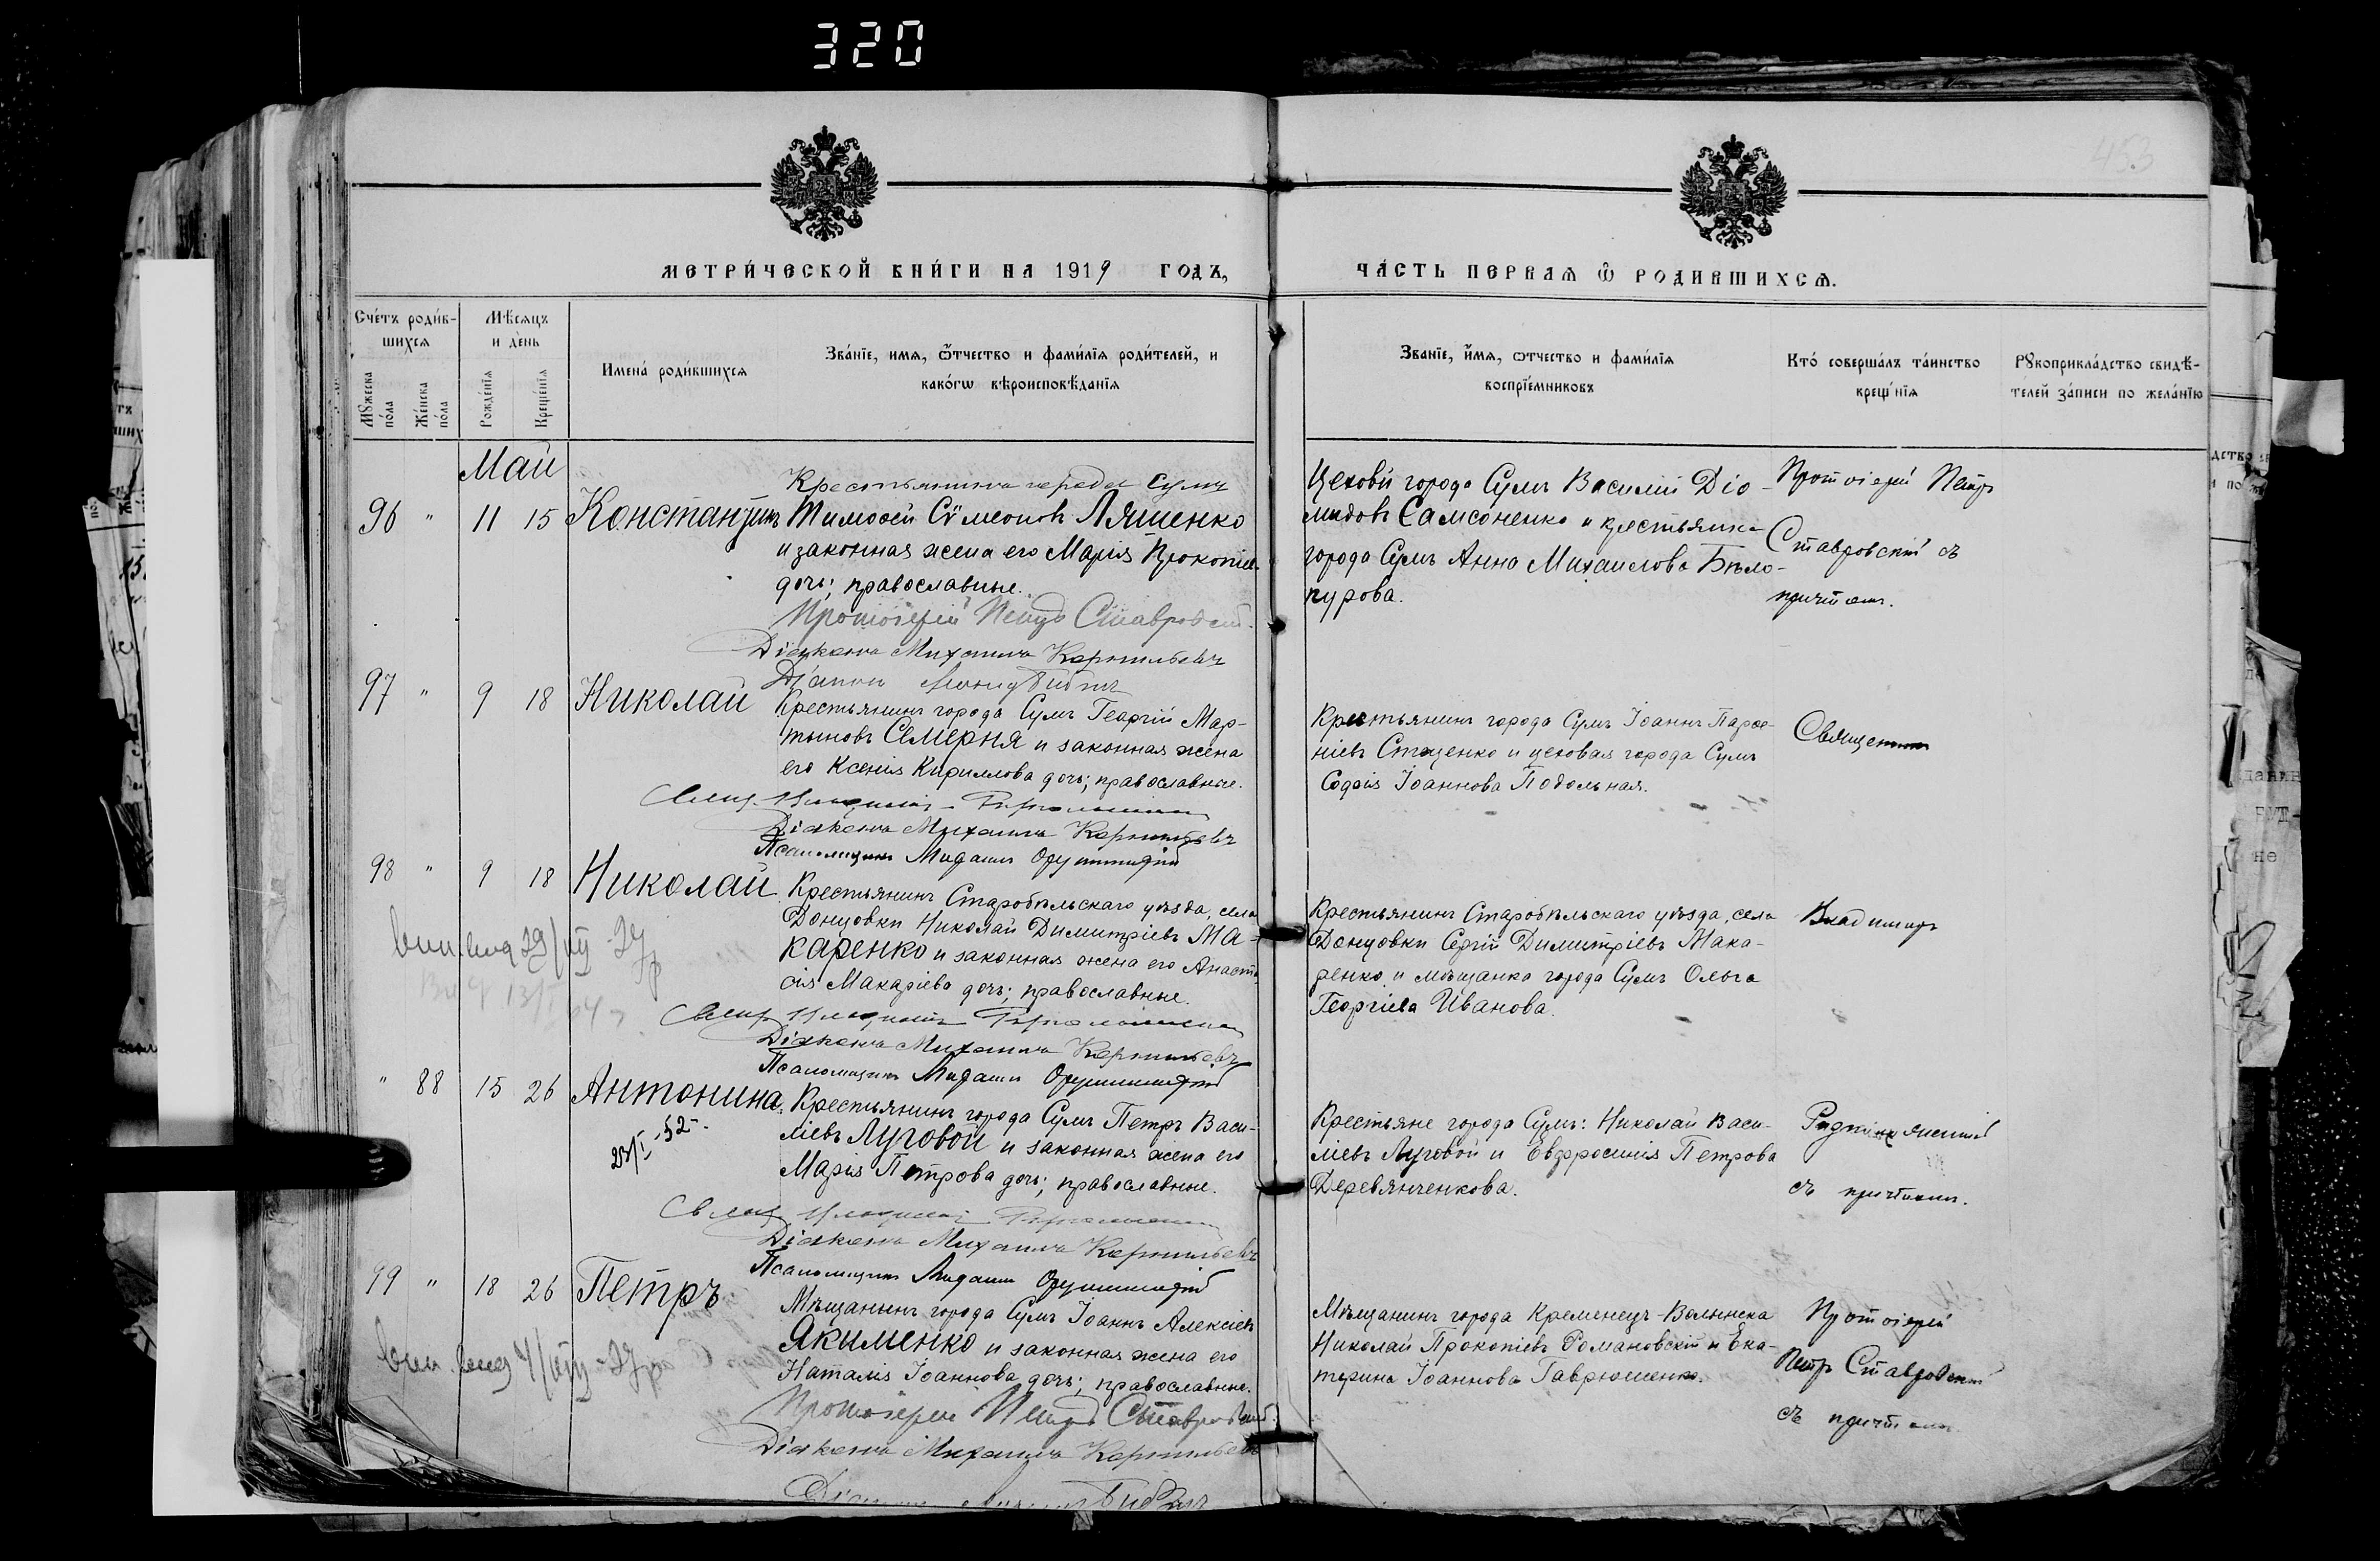 320
453
МЕТРИ́ЧЕСКОЙ КНИ́ГИ НА 1919 ГОДЪ,
ЧА́СТЬ ПЕРВАѦ Ѿ РОДИВШИХСѦ.
Сче́тъ роди́в-
шихсѧ
Мѣ́сѧцъ
и де́нь
Имена̀ роди́вшихсѧ
Зва́нїе, имѧ, ѻ҆́тчество и фами́лїѧ роди́телей, и
како́гѡ вѣроисповѣ́данїѧ
Мꙋжеска
по́ла
Же́нска
по́ла
Рожде́нїѧ
Креще́нїѧ
Зва́нїе, и҆́мѧ, ѻтчество и фами́лїѧ
воспрїе́мниковъ
Кто́ соверша́лъ та́инство
креще́нїѧ
Рꙋкоприкла́дство свидѣ́-
телей за́писи по жела́нїю
Май
96 " 11 15 Константинъ
Крестьянинъ города Сумъ
Тимоѳей Сѵмеоновъ Ляшенко
и законная жена его Марія Прокопіева
дочь; православные.
Протоіерей Петръ Ставровскій
Діаконъ Михаилъ Корнильевъ
Діаконъ
Цеховый города Сумъ Василій Діо-
мидовъ Самсоненко и крестьянка
города Сумъ Анна Михаилова Бѣло-
курова.
Протоіерей Петръ
Ставровскій съ
причтомъ.
97 " 9 18 Николай
Крестьянинъ города Сумъ Георгій Мар-
тыновъ Семерня и законная жена
его Ксенія Кириллова дочь; православные.
Свящ. Владиміръ
Діаконъ Михаилъ Корнильевъ
Псаломщикъ
Крестьянинъ города Сумъ Іоаннъ Парѳе-
ніевъ Стаценко и цеховая города Сумъ
Софія Іоаннова Подольная.
Священникъ
98 " 9 18 Николай
Крестьянинъ Старобѣльскаго уѣзда, села
Донцовки Николай Димитріевъ Ма-
каренко и законная жена его Анаста-
сія Макаріева дочь; православные.
Свящ. Владиміръ
Діаконъ Михаилъ Корнильевъ
Псаломщикъ
Крестьянинъ Старобѣльскаго уѣзда, села
Донцовки Сергій Димитріевъ Мака-
ренко и мѣщанка города Сумъ Ольга
Георгіева Иванова.
Владиміръ
" 88 15 26 Антонина
23/I-52-
Крестьянинъ города Сумъ Петръ Васи-
ліевъ Луговой и законная жена его
Марія Петрова дочь; православные.
Свящ. Владиміръ
Діаконъ Михаилъ Корнильевъ
Псаломщикъ
Крестьяне города Сумъ: Николай Васи-
ліевъ Луговой и Евфросинія Петрова
Деревянченкова.
съ причтомъ.
99 " 18 26 Петръ
Мѣщанинъ города Сумъ Іоаннъ Алексіевъ
Якименко и законная жена его
Наталія Іоаннова дочь; православные.
Протоіерей Петръ Ставровскій
Діаконъ Михаилъ Корнильевъ
Діаконъ
Мѣщанинъ города Кременецъ-Волынска
Николай Прокопіевъ Романовскій и Ека-
терина Іоаннова Гаврюшенко.
Протоіерей
Петръ Ставровскій
съ причтомъ.